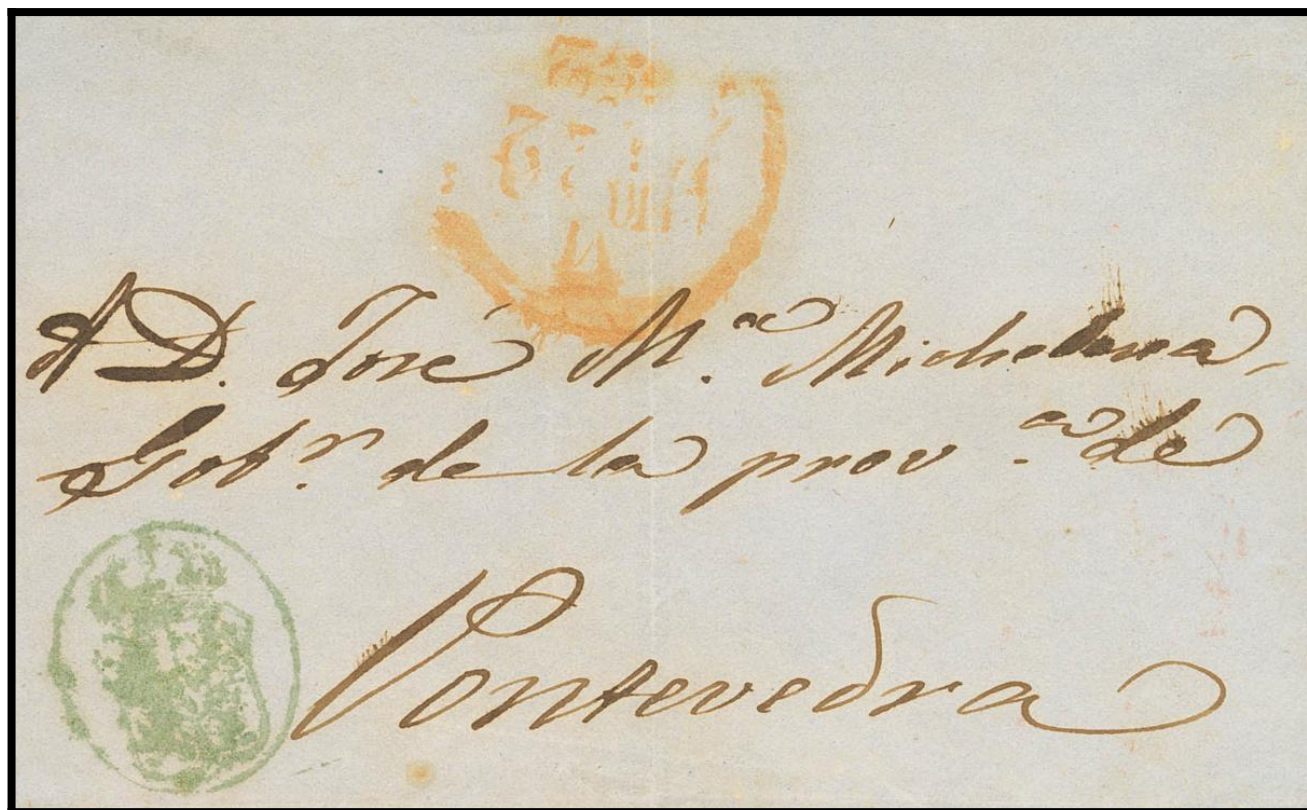 A D. José M.ª Michelena,
Gob.r de la prov.ª de
Pontevedra